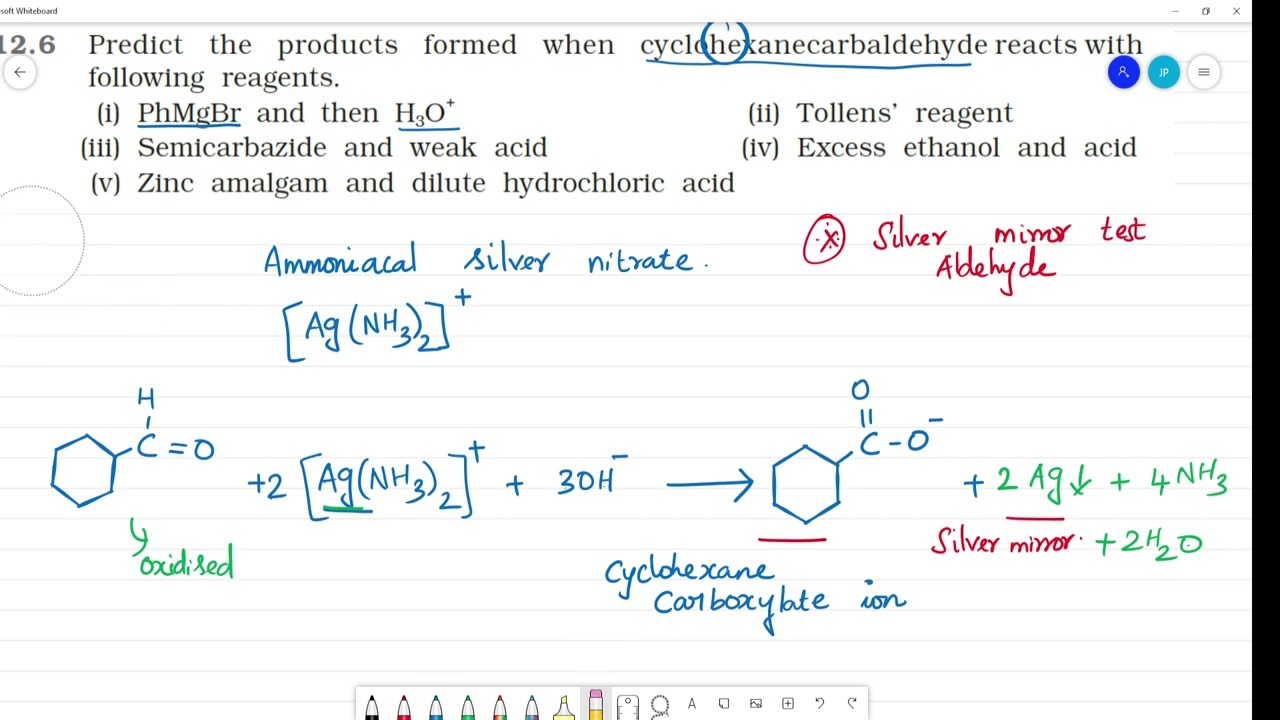 soft Whiteboard
12.6 Predict the products formed when cyclohexanecarbaldehyde reacts with
following reagents.
(i) PhMgBr and then H₃O⁺ (ii) Tollens' reagent
(iii) Semicarbazide and weak acid (iv) Excess ethanol and acid
(v) Zinc amalgam and dilute hydrochloric acid
JP
Silver mirror test
Aldehyde
Ammoniacal silver nitrate.
[Ag(NH₃)₂]⁺
H
C=O
+2 [Ag(NH₃)₂]⁺ + 3OH⁻ ⟶
O
C-O⁻
+ 2 Ag↓ + 4NH₃
Silver mirror. +2H₂O
oxidised
Cyclohexane
Carboxylate ion
A